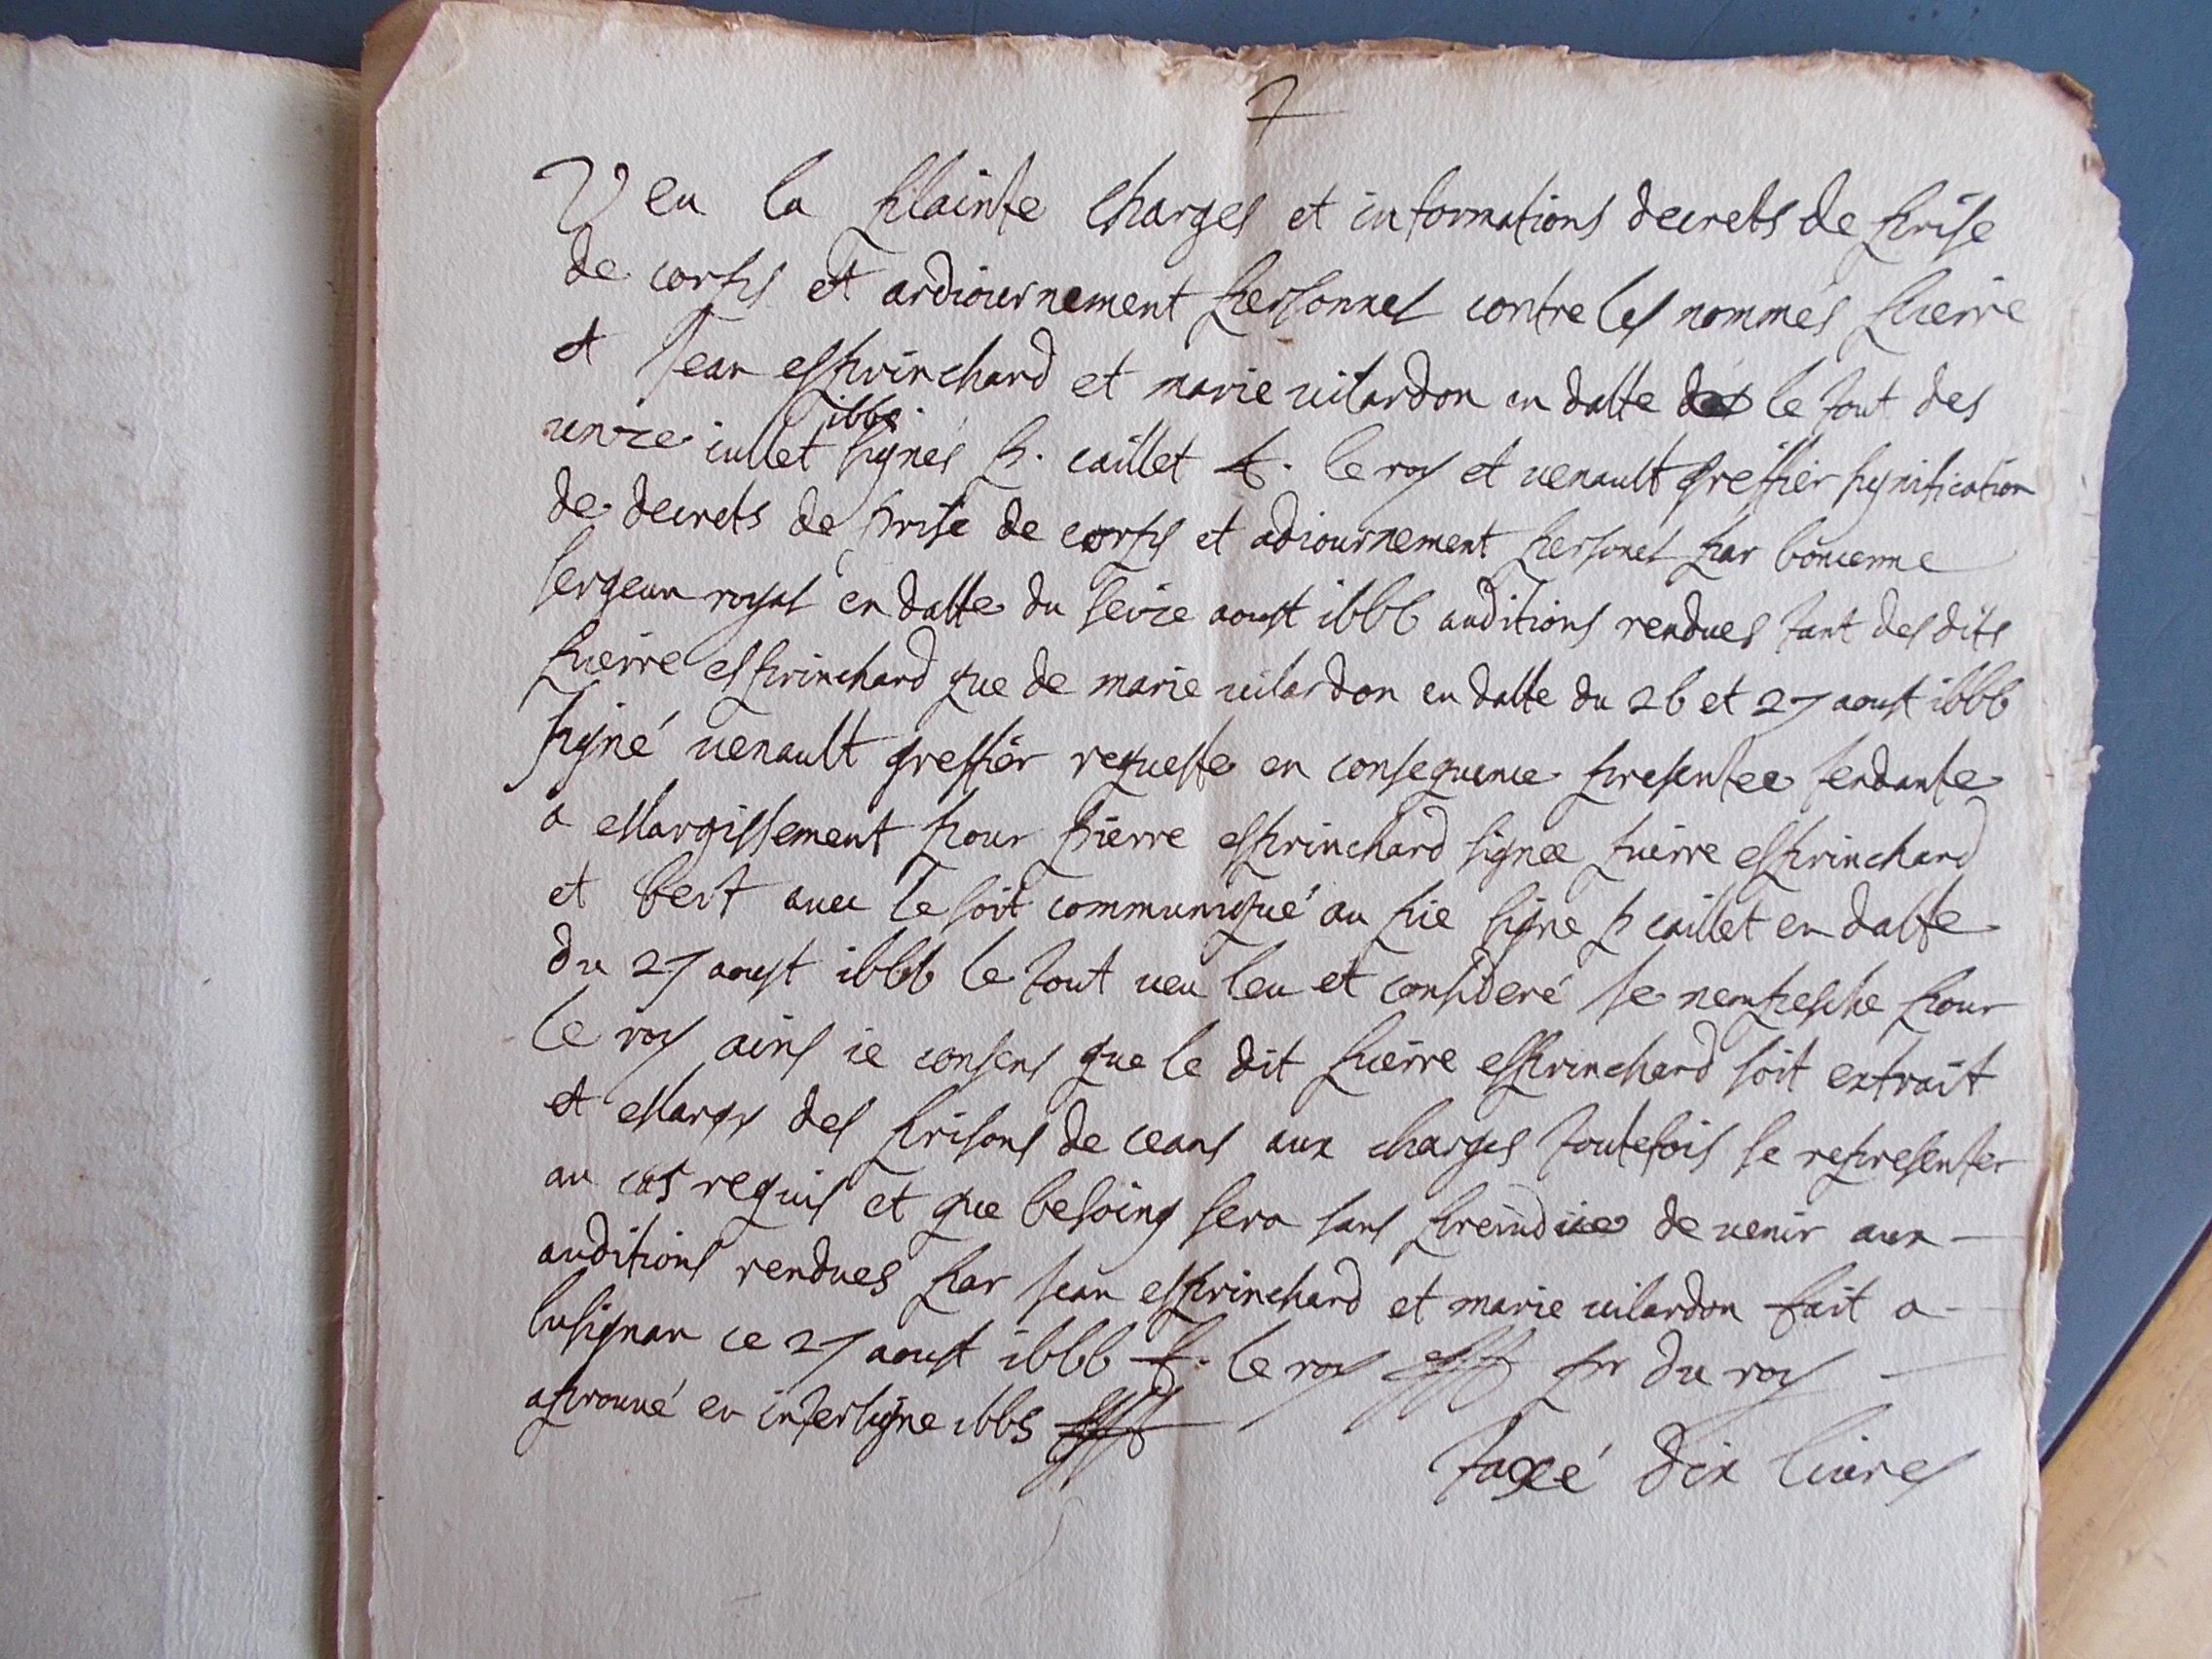 7
Veu la plainte charges et informations decrets de prise
de corps et ardiournement personnel contre les nommés pierre
et Jean esprinchard et marie uilardon en datte des le tout des
unze iullet 1665 signés p. caillet f. le roy et uenault greffier signification
de decrets de prise de corps et adiournement personel par bonienne
sergean royal en datte du seize aoust 1666 auditions rendues tant des dits
pierre esprinchard que de marie uilardon en datte du 26 et 27 aoust 1666
signé uenault greffier requeste en consequence presentee tendante
a eslargissement pour pierre esprinchard signee pierre esprinchard
et bert auec le soit communiqué au pre signe p caillet en datte
du 27 aoust 1666 le tout ueu leu et consideré Je nempesche pour
le roy ains ie consens que le dit pierre esprinchard soit extrait
et eslargy des prisons de ceans aux charges toutefois se representer
au cas requis et que besoing sera sans preiudice de uenir aux
auditions rendues par Jean esprinchard et marie uilardon fait a
lusignan ce 27 aoust 1666 f. le roy pr du roy
aprouué en interligne 1665
Taxé dix liures